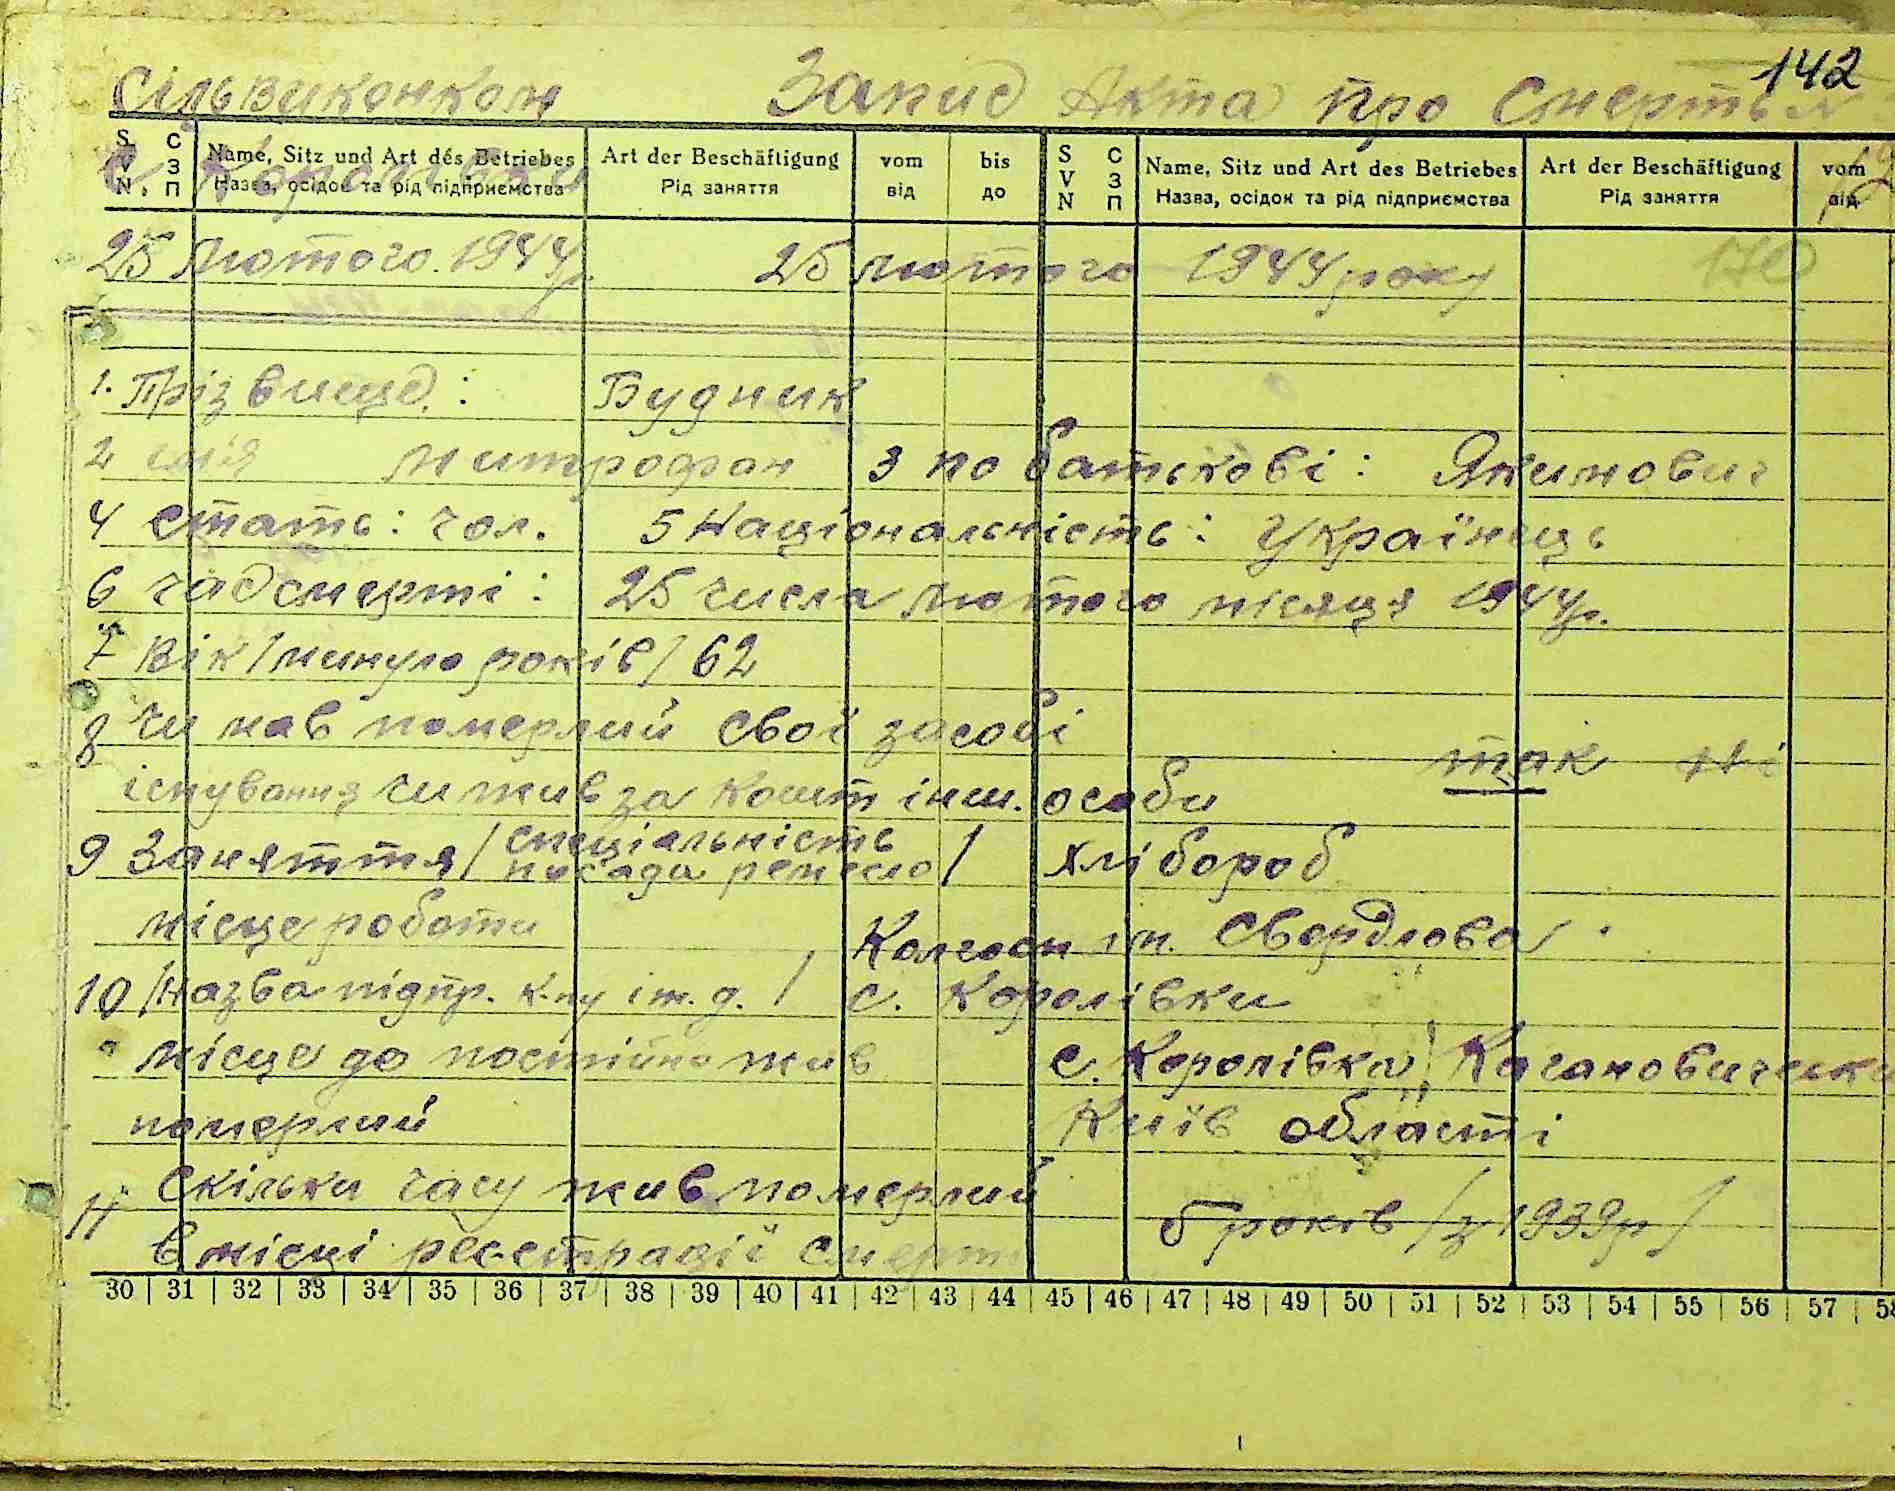 142
Сільвиконком Запис Акта про Смерть №
с. Королівки
S V N. С З П Name, Sitz und Art des Betriebes Art der Beschäftigung vom bis S V N С З П Name, Sitz und Art des Betriebes Art der Beschäftigung vom
Назва, осідок та рід підприємства Рід заняття від до Назва, осідок та рід підприємства Рід заняття від
25 Лютого. 1944р. 25 лютого 1944 року
1. Прізвище: Будник
2 імя Митрофан 3 по батькові: Якимович
4 стать: чол. 5 Національність: Українець
6 час смерті: 25 числа лютого місяця 1944р.
7 Вік /минуло років/ 62
8 чи мав померлий свої засобі
існування чи жив за кошт інш. особи так ні
9 Заняття /спеціальність посада ремесло/ Хлібороб
місце роботи Колгосп ім. Свердлова
10 /Назва підпр. к-пу і т. д./ с. Королівки
" місце де постійно жив с. Королівка, Кагановичськ
померлий Київ області
11 Скільки часу жив померлий
в місці реєстрації смерти 5 років /з 1939р/
30 | 31 | 32 | 33 | 34 | 35 | 36 | 37 | 38 | 39 | 40 | 41 | 42 | 43 | 44 | 45 | 46 | 47 | 48 | 49 | 50 | 51 | 52 | 53 | 54 | 55 | 56 | 57 | 58